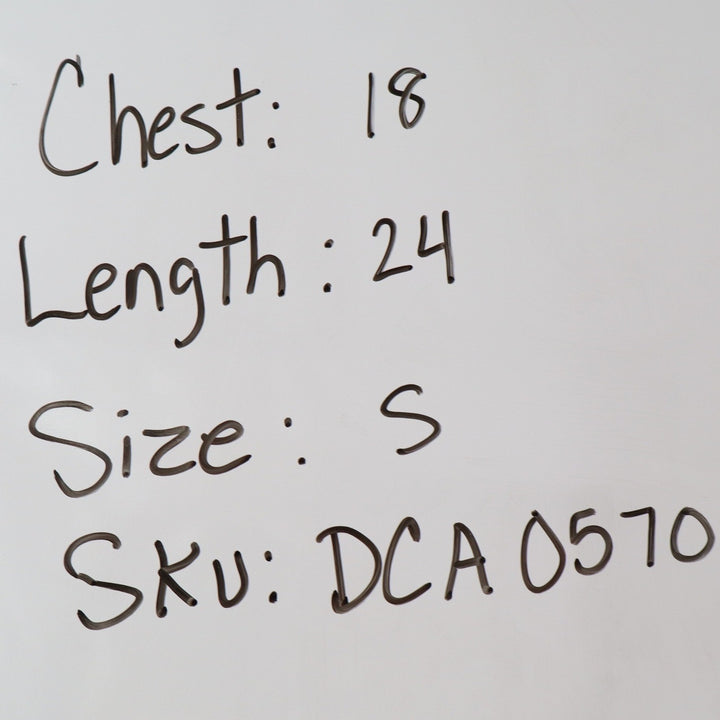 Chest: 18
Length: 24
Size: S
SKU: DCA 0570